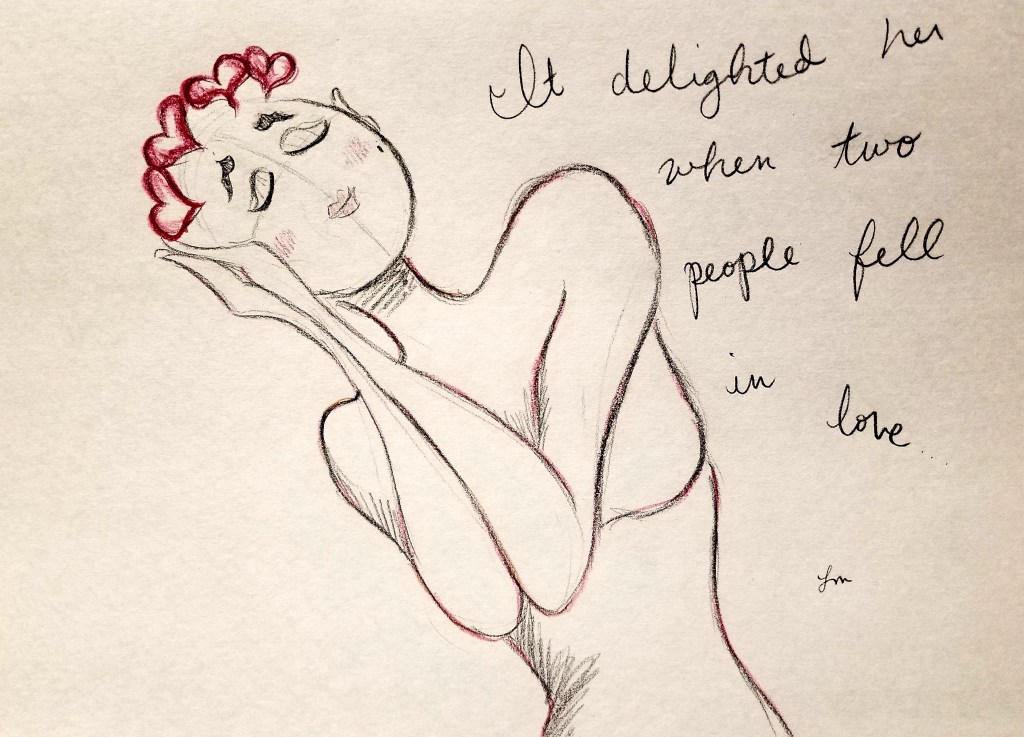 It delighted her
when two
people fell
in
love...